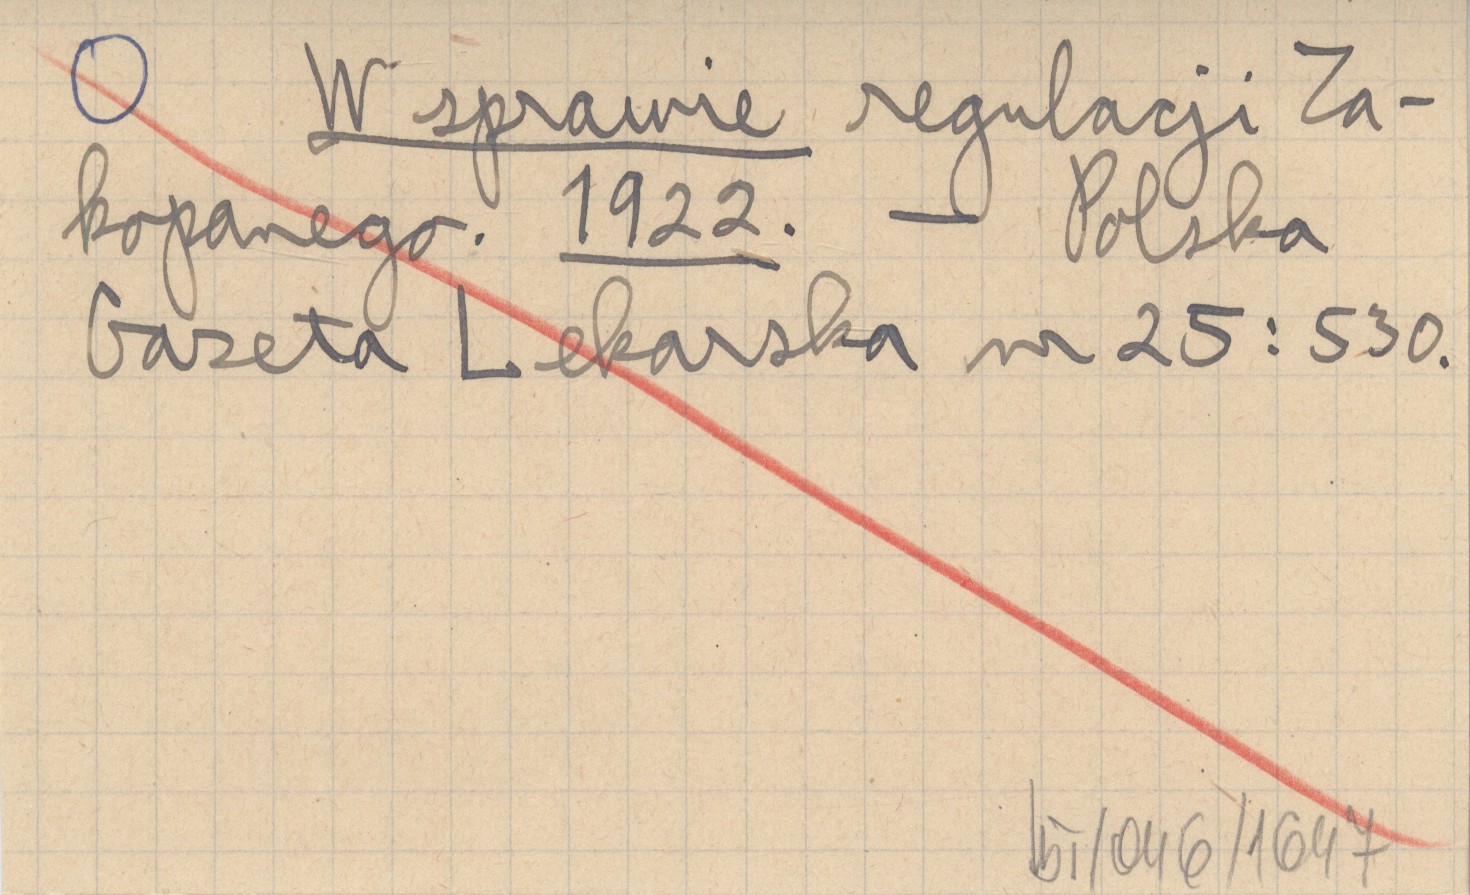 W sprawie regulacji Za-
kopanego. 1922. — Polska
Gazeta Lekarska nr 25: 530.
bi/046/1647